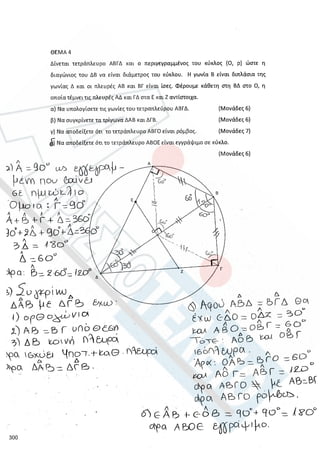 ΘΕΜΑ 4
Δίνεται τετράπλευρο ΑΒΓΔ και ο περιγεγραμμένος του κύκλος (Ο, ρ) ώστε η
διαγώνιος του ΔΒ να είναι διάμετρος του κύκλου. Η γωνία Β είναι διπλάσια της
γωνίας Δ και οι πλευρές ΑΒ και ΒΓ είναι ίσες. Φέρουμε κάθετη στη ΒΔ στο Ο, η
οποία τέμνει τις πλευρές ΑΔ και ΓΔ στα Ε και Ζ αντίστοιχα.
α) Να υπολογίσετε τις γωνίες του τετραπλεύρου ΑΒΓΔ. (Μονάδες 6)
β) Να συγκρίνετε τα τρίγωνα ΔΑΒ και ΔΓΒ. (Μονάδες 6)
γ) Να αποδείξετε ότι το τετράπλευρο ΑΒΓΟ είναι ρόμβος. (Μονάδες 7)
δ) Να αποδείξετε ότι το τετράπλευρο ΑΒΟΕ είναι εγγράψιμο σε κύκλο.
(Μονάδες 6)
α) Â = 90° ως εγγεγραμ-
μένη που βαίνει
σε ημικύκλιο
Όμοια: Γ̂ = 90°
Â + B̂ + Γ̂ + Δ̂ = 360°
90° + 2Δ̂ + 90° + Δ̂ = 360°
3Δ̂ = 180°
Δ̂ = 60°
Άρα: B̂ = 2·60° = 120°
β) Συγκρίνω
ΔÂΒ με ΔΓ̂Β έχω:
1) ορθογώνια
2) ΑΒ = ΒΓ υπόθεση
3) ΔΒ κοινή πλευρά
άρα ισχύει Υποτ. + καθ. πλευρά
άρα ΔÂΒ = ΔΓ̂Β.
γ) Αφού ΑΒ̂Δ = ΒΓ̂Δ θα
έχω ΕΔ̂Ο = ΟΔ̂Ζ = 30°
και ΑΒ̂Ο = ΟΒ̂Γ = 60°
Τότε: ΑΟ̂Β και ΟΒΓ
ισόπλευρα.
Άρα: ΟΑ̂Β = ΒΓ̂Ο = 60°
και ΑΟ̂Γ = ΑΒ̂Γ = 120°
άρα ΑΒΓΟ # με ΑΒ=ΒΓ
άρα ΑΒΓΟ ρόμβος.
δ) ΕÂΒ + ΕÔΒ = 90° + 90° = 180°
άρα ΑΒΟΕ εγγράψιμο.
300